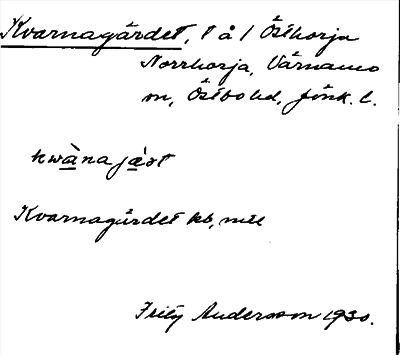 Kvarnagärdet, t å 1 Östhorja
Norrhorja, Värnamo
sn, Östbo hd, Jönk. l.
kwàna jæ̀st
Kvarnagärdet kb, mtl
Fritz Andersson 1930.